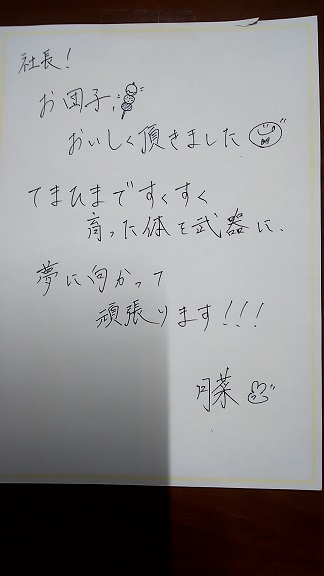 社長!
お団子
おいしく頂きました
てまひまですくすく
育った体を武器に、
夢に向かって
頑張ります!!!
月菜